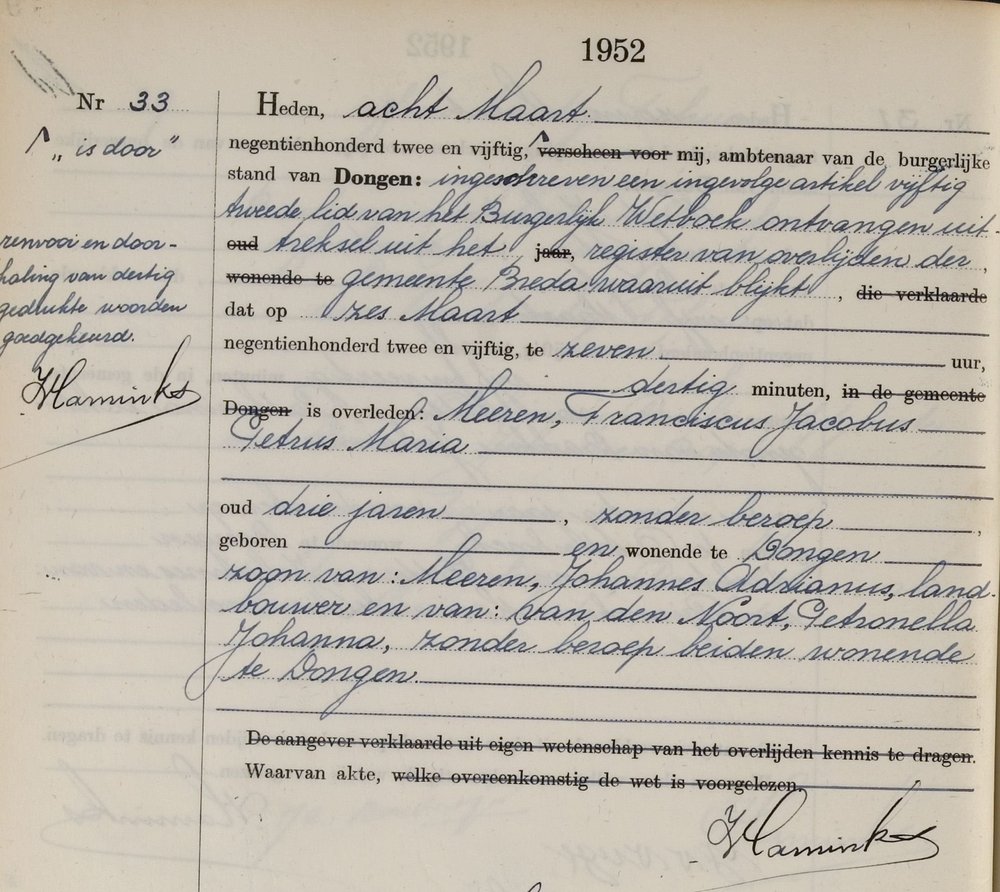 1952
Nr 33
Heden, acht Maart
„is door”
negentienhonderd twee en vijftig, verscheen voor mij, ambtenaar van de burgerlijke
stand van Dongen: ingeschreven een ingevolge artikel vijftig
tweede lid van het Burgerlijk Wetboek ontvangen uit-
oud treksel uit het jaar, register van overlijden der,
wonende te gemeente Breda waaruit blijkt, die verklaarde
renvooi en door-
haling van dertig
gedrukte woorden
goedgekeurd.
dat op zes Maart
negentienhonderd twee en vijftig, te zeven uur,
dertig minuten, in de gemeente
Dongen is overleden: Meeren, Franciscus Jacobus
Petrus Maria
oud drie jaren, zonder beroep,
geboren en wonende te Dongen
zoon van: Meeren, Johannes Adrianus, land-
bouwer en van: van den Noort, Petronella
Johanna, zonder beroep beiden wonende
te Dongen.
De aangever verklaarde uit eigen wetenschap van het overlijden kennis te dragen.
Waarvan akte, welke overeenkomstig de wet is voorgelezen.